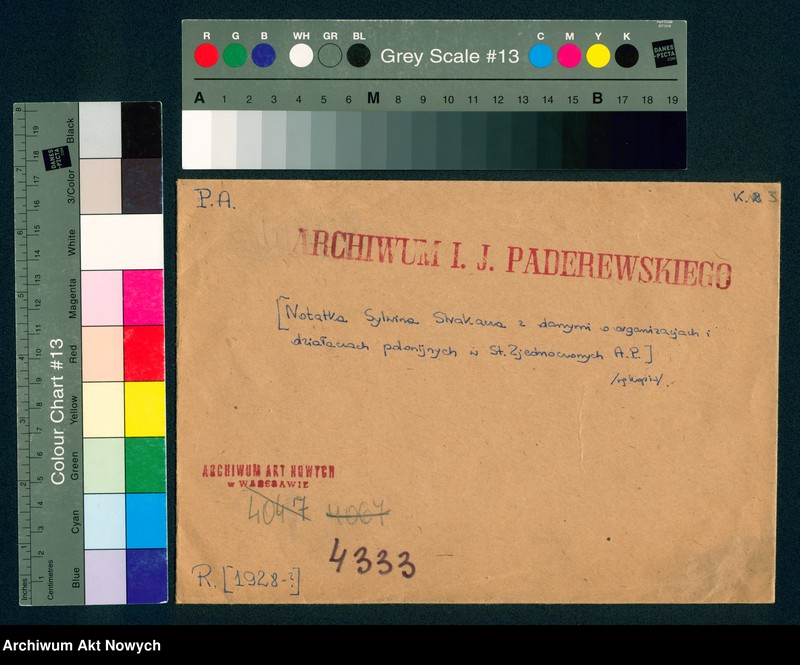 R G B WH GR BL Grey Scale #13 C M Y K
DANES-PICTA
A 1 2 3 4 5 6 M 8 9 10 11 12 13 14 15 B 17 18 19
Colour Chart #13
Black
3/Color
White
Magenta
Red
Yellow
Green
Cyan
Blue
Inches
Centimetres
P.A.
K. 3
ARCHIWUM I. J. PADEREWSKIEGO
[Notatka Sylwina Strakacza z danymi o organizacjach i
działaczach polonijnych w St. Zjednoczonych A.P.]
ARCHIWUM AKT NOWYCH
w WARSZAWIE
4047 4067
4333
R. [1928-?]
Archiwum Akt Nowych